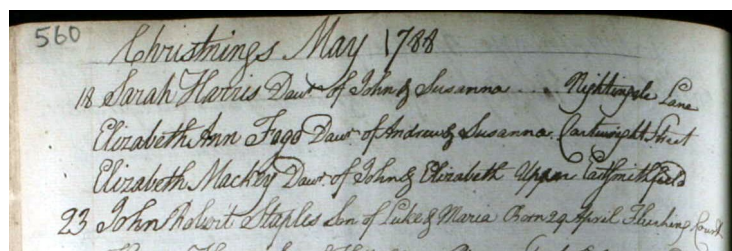 560
Christnings May 1788
18 Sarah Harris Dawr of John & Susanna .... Nightingale Lane
Elizabeth Ann Fogo Dawr of Andrew & Susanna. Cartwright Street
Elizabeth Mackey Dawr of John & Elizabeth Upper East Smithfield
23 John Robert Staples Son of Luke & Maria Born 29 April Flushing Court